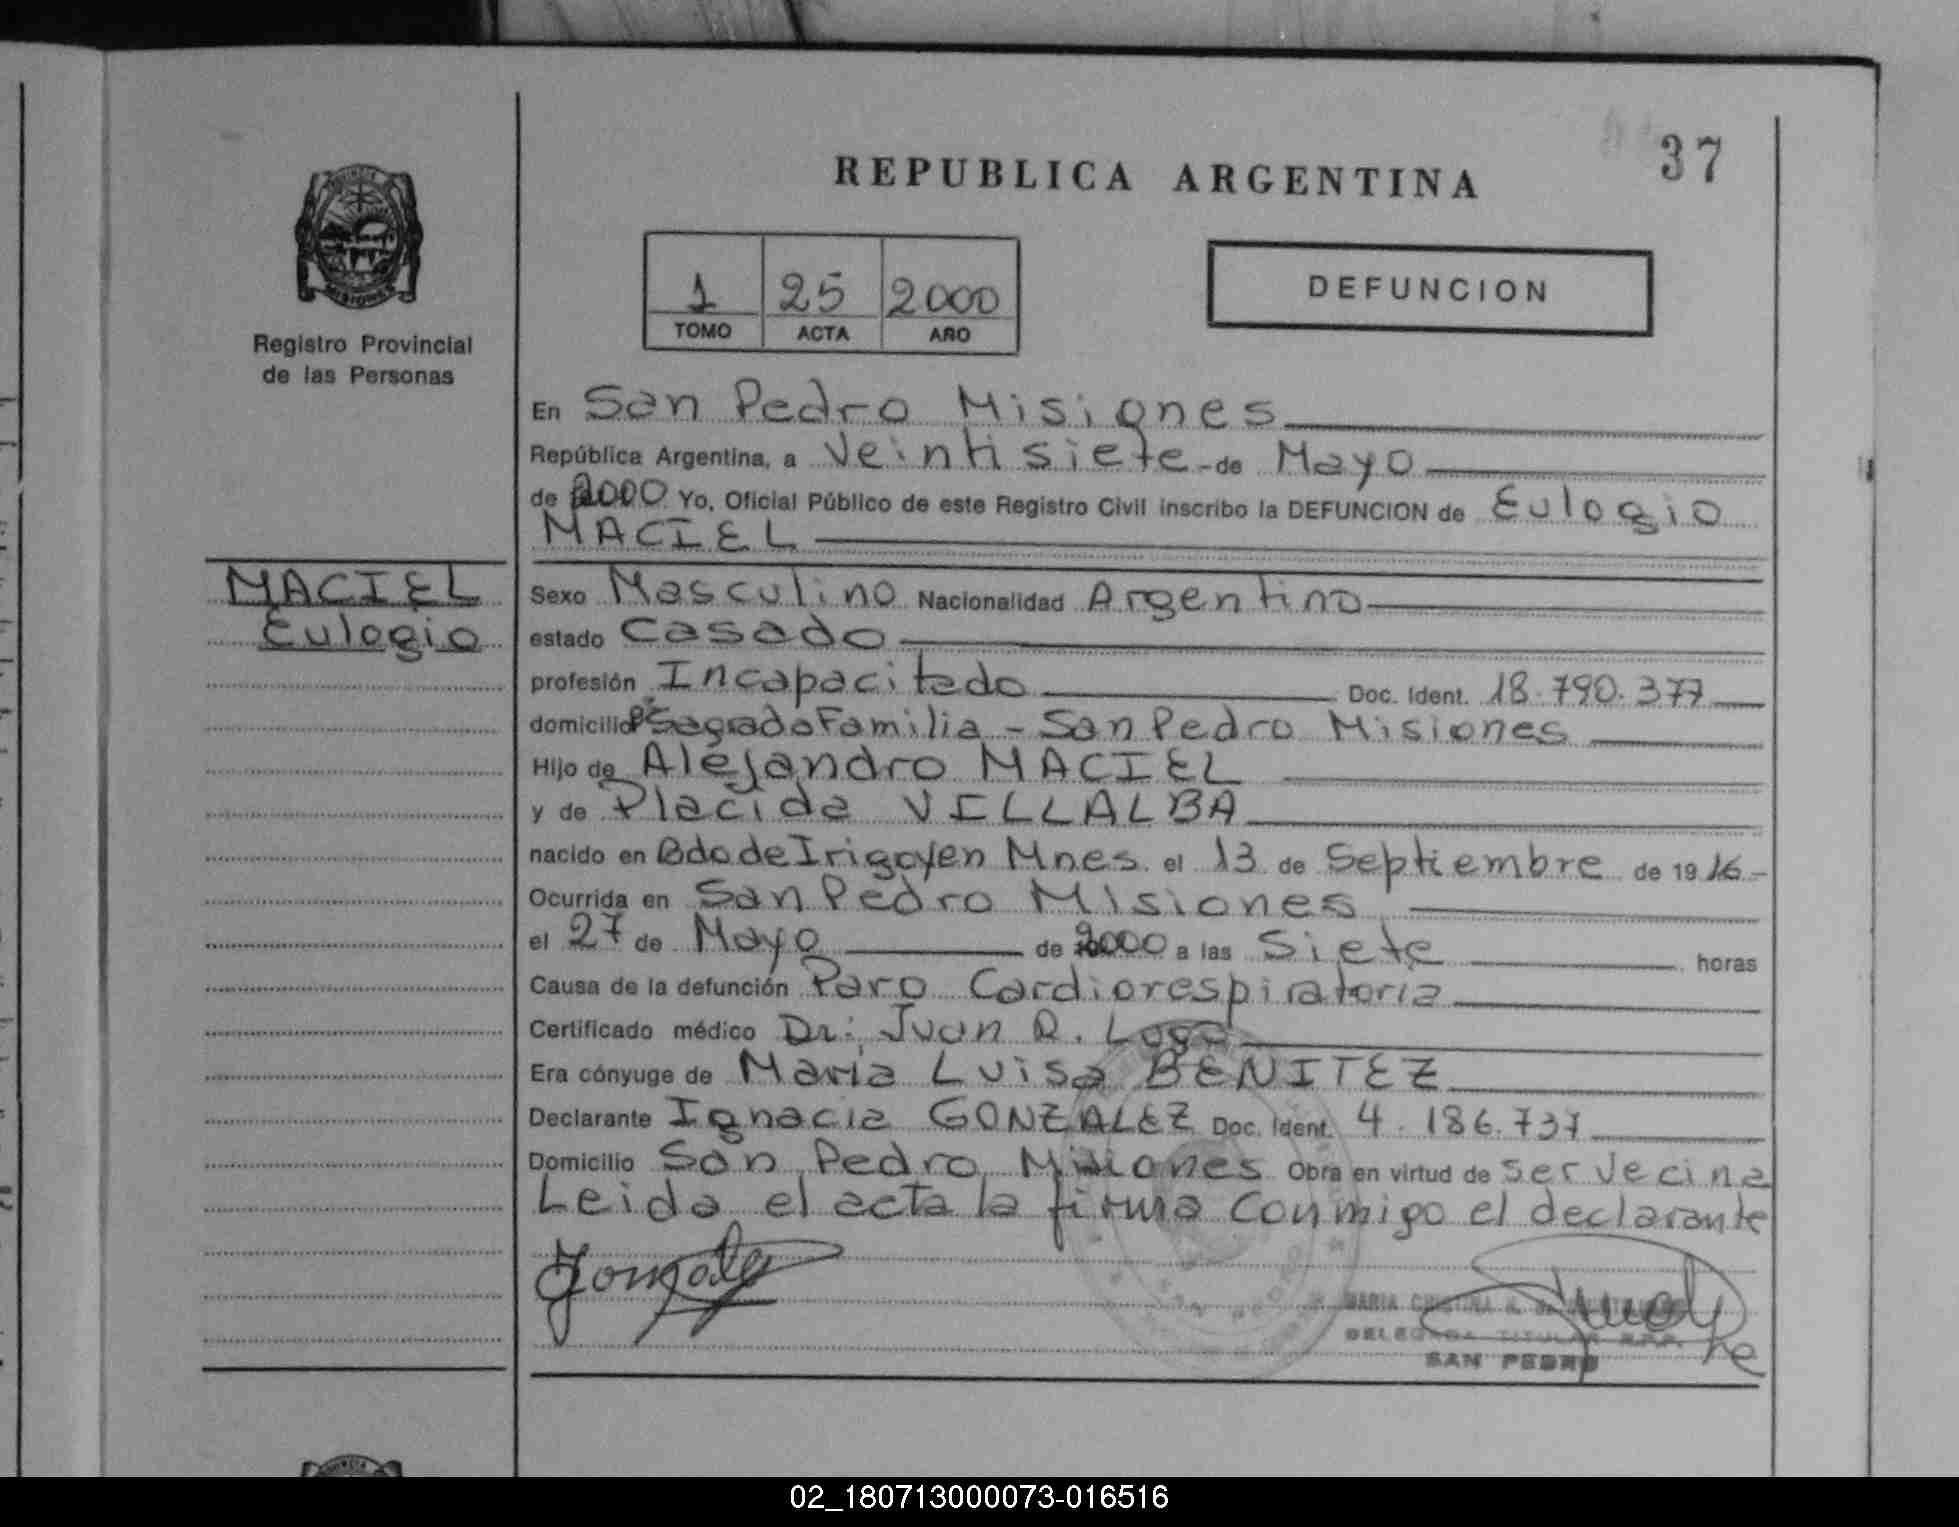 37
REPUBLICA ARGENTINA
PROVINCIA
MISIONES
Registro Provincial
de las Personas
1 25 2000
TOMO ACTA AÑO
DEFUNCION
En San Pedro Misiones
República Argentina, a Veintisiete de Mayo
de 2000 Yo, Oficial Público de este Registro Civil inscribo la DEFUNCION de Eulogio
MACIEL
MACIEL
Eulogio
Sexo Masculino Nacionalidad Argentino
estado Casado
profesión Incapacitado Doc. Ident. 18.790.377
domicilio Bº Sagrada Familia - San Pedro Misiones
Hijo de Alejandro MACIEL
y de Placida VILLALBA
nacido en Bdo de Irigoyen Mnes. el 13 de Septiembre de 1916-
Ocurrida en San Pedro Misiones
el 27 de Mayo de 2000 a las Siete horas
Causa de la defunción Paro Cardiorespiratoria
Certificado médico Dr: Juan R. Logo
Era cónyuge de Maria Luisa BENITEZ
Declarante Ignacia GONZALEZ Doc. Ident. 4.186.737
Domicilio San Pedro Misiones Obra en virtud de ser Vecina
Leida el acta la firma conmigo el declarante
MARIA CRISTINA
DELEGADA TITULAR R.P.P.
SAN PEDRO
02_180713000073-016516